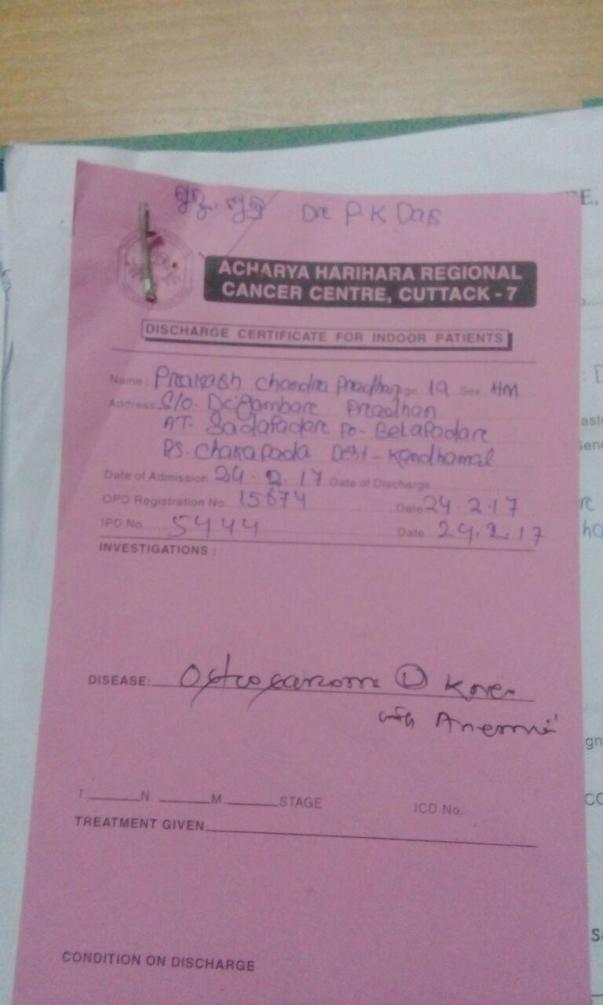 Dr P K Das
ACHARYA HARIHARA REGIONAL
CANCER CENTRE, CUTTACK - 7
DISCHARGE CERTIFICATE FOR INDOOR PATIENTS
Name: Prakash Chandra Pradhan Age 19 Sex HM
Address: S/O. Pradhan
AT. Sadapadar Po- Belapadar
PS. Chakapada Dist - Kandhamal
Date of Admission 24.2.17 Date of Discharge
OPD Registration No. 15674 Date 24.2.17
IPD No. 5444 Date 24.2.17
INVESTIGATIONS :
DISEASE: Osteosarcoma Knee
with Anemia
T N M STAGE ICD No.
TREATMENT GIVEN
CONDITION ON DISCHARGE